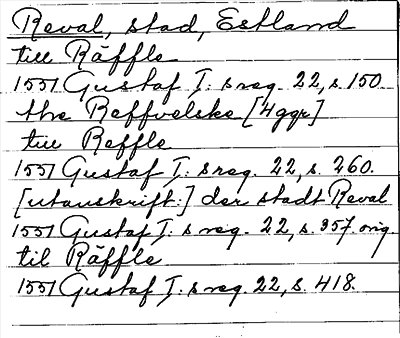 Reval, stad, Estland
till Räffle
1551 Gustaf I: s reg. 22, s. 150.
the Reffvelske [4 ggr]
till Reffle
1551 Gustaf I: s reg. 22, s. 260.
[utanskrift:] der stadt Reval
1551 Gustaf I: s reg. 22, s. 357. orig.
til Räffle
1551 Gustaf I: s reg. 22, s. 418.